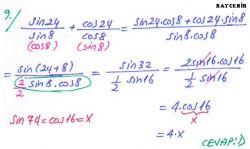 BAYCEBİR
9) sin24/sin8 + cos24/cos8 = (sin24.cos8 + cos24.sin8)/(sin8.cos8)
(cos8) (sin8)
= sin(24+8)/((2/2) sin8.cos8) = sin32/((1/2) sin16) = 2sin16.cos16/((1/2) sin16)
= 4.cos16
x
sin74=cos16=x
= 4.x
CEVAP:D